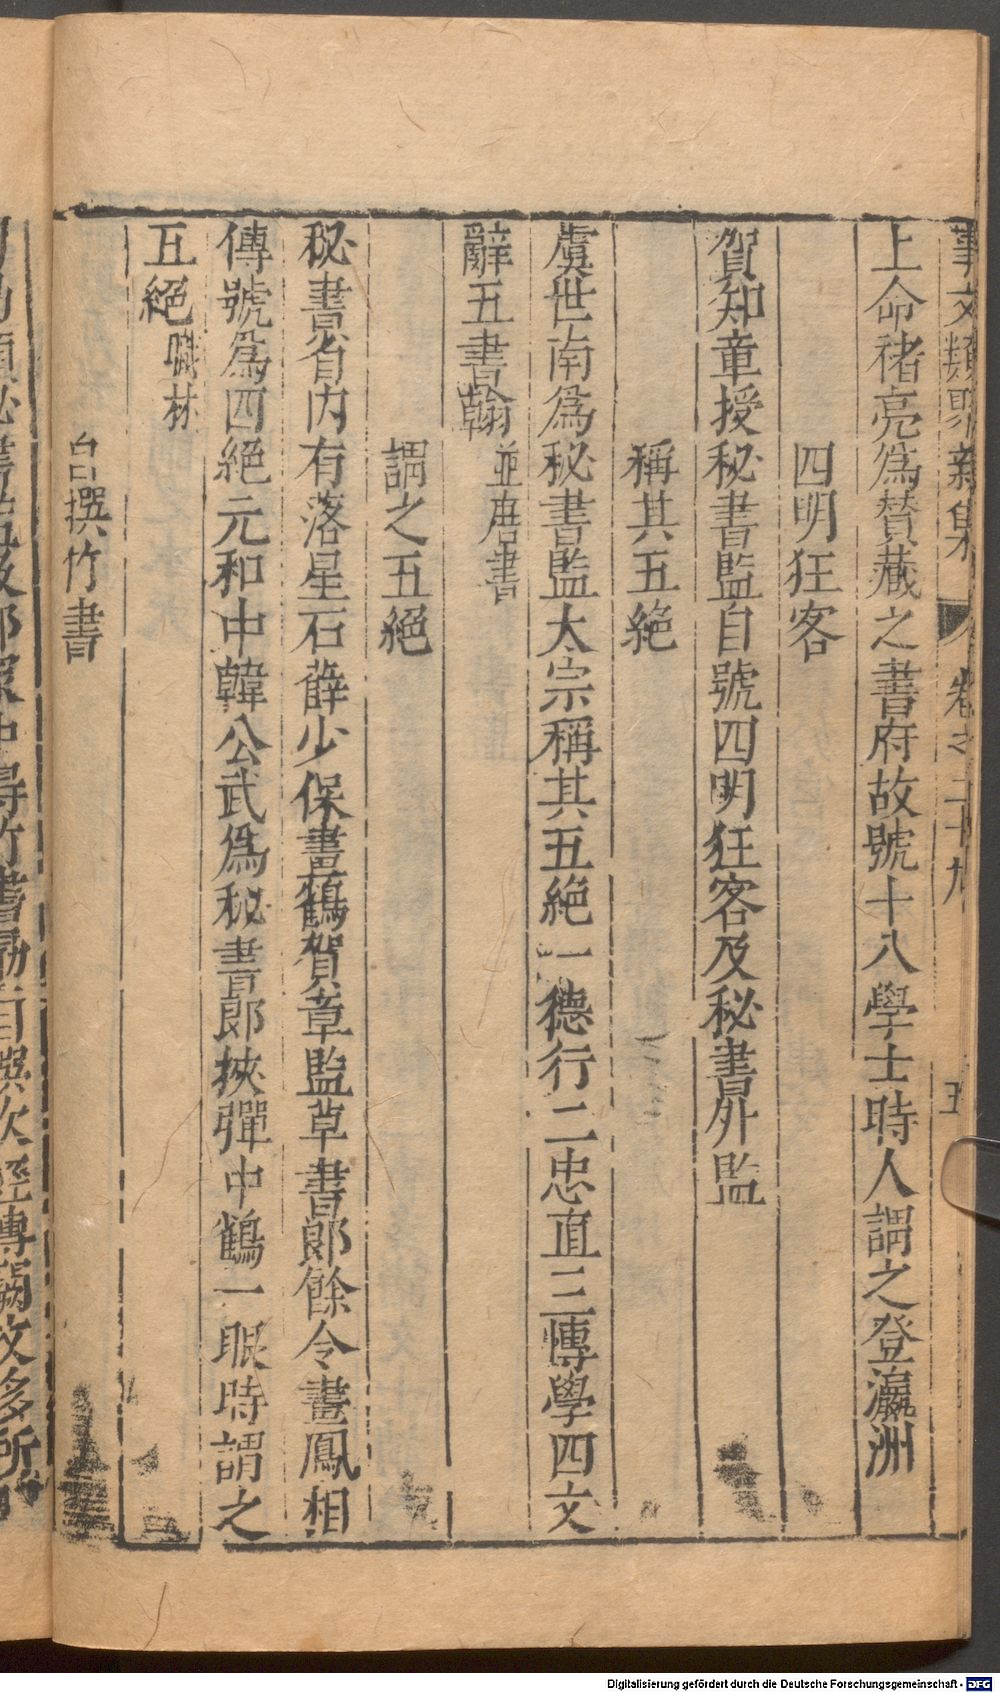 事文類聚新集 卷之二十九 五
上命褚亮爲贊藏之書府故號十八學士時人謂之登瀛洲
四明狂客
賀知章授秘書監自號四明狂客及秘書外監
稱其五絶
虞世南爲秘書監太宗稱其五絶一德行二忠直三慱學四文
辭五書翰 並唐書
謂之五絕
秘書省内有落星石薛少保畫鶴賀章監草書郎餘令畫鳳相
傳號爲四絕元和中韓公武爲秘書郎挾彈中鶴一眼時謂之
五絕 職林
自撰竹書
Digitalisierung gefördert durch die Deutsche Forschungsgemeinschaft - DFG